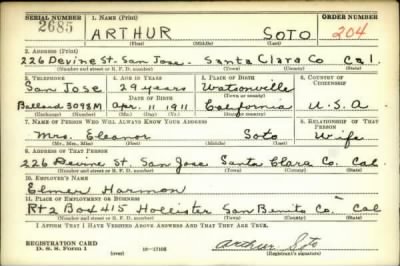 SERIAL NUMBER 1. NAME (Print) ORDER NUMBER
2685 ARTHUR SOTO 204
(First) (Middle) (Last)
2. ADDRESS (Print)
226 Devine St. San Jose. Santa Clara Co Cal.
(Number and street or R. F. D. number) (Town) (County) (State)
3. TELEPHONE 4. AGE IN YEARS 5. PLACE OF BIRTH 6. COUNTRY OF CITIZENSHIP
San Jose 29 years Watsonville
DATE OF BIRTH (Town or county)
Ballard 3098M Apr. 11 1911 California U.S.A
(Exchange) (Number) (Mo.) (Day) (Yr.) (State or country)
7. NAME OF PERSON WHO WILL ALWAYS KNOW YOUR ADDRESS 8. RELATIONSHIP OF THAT PERSON
Mrs. Eleanor Soto Wife
(Mr., Mrs., Miss) (First) (Middle) (Last)
9. ADDRESS OF THAT PERSON
226 Devine St. San Jose Santa Clara Co. Cal
(Number and street or R. F. D. number) (Town) (County) (State)
10. EMPLOYER'S NAME
Elmer Harmon
11. PLACE OF EMPLOYMENT OR BUSINESS
Rt 2 Box 415 Hollister San Benito Co Cal
(Number and street or R. F. D. number) (Town) (County) (State)
I AFFIRM THAT I HAVE VERIFIED ABOVE ANSWERS AND THAT THEY ARE TRUE.
REGISTRATION CARD
D. S. S. Form 1 (over) 16-17105 Arthur Soto
(Registrant's signature)